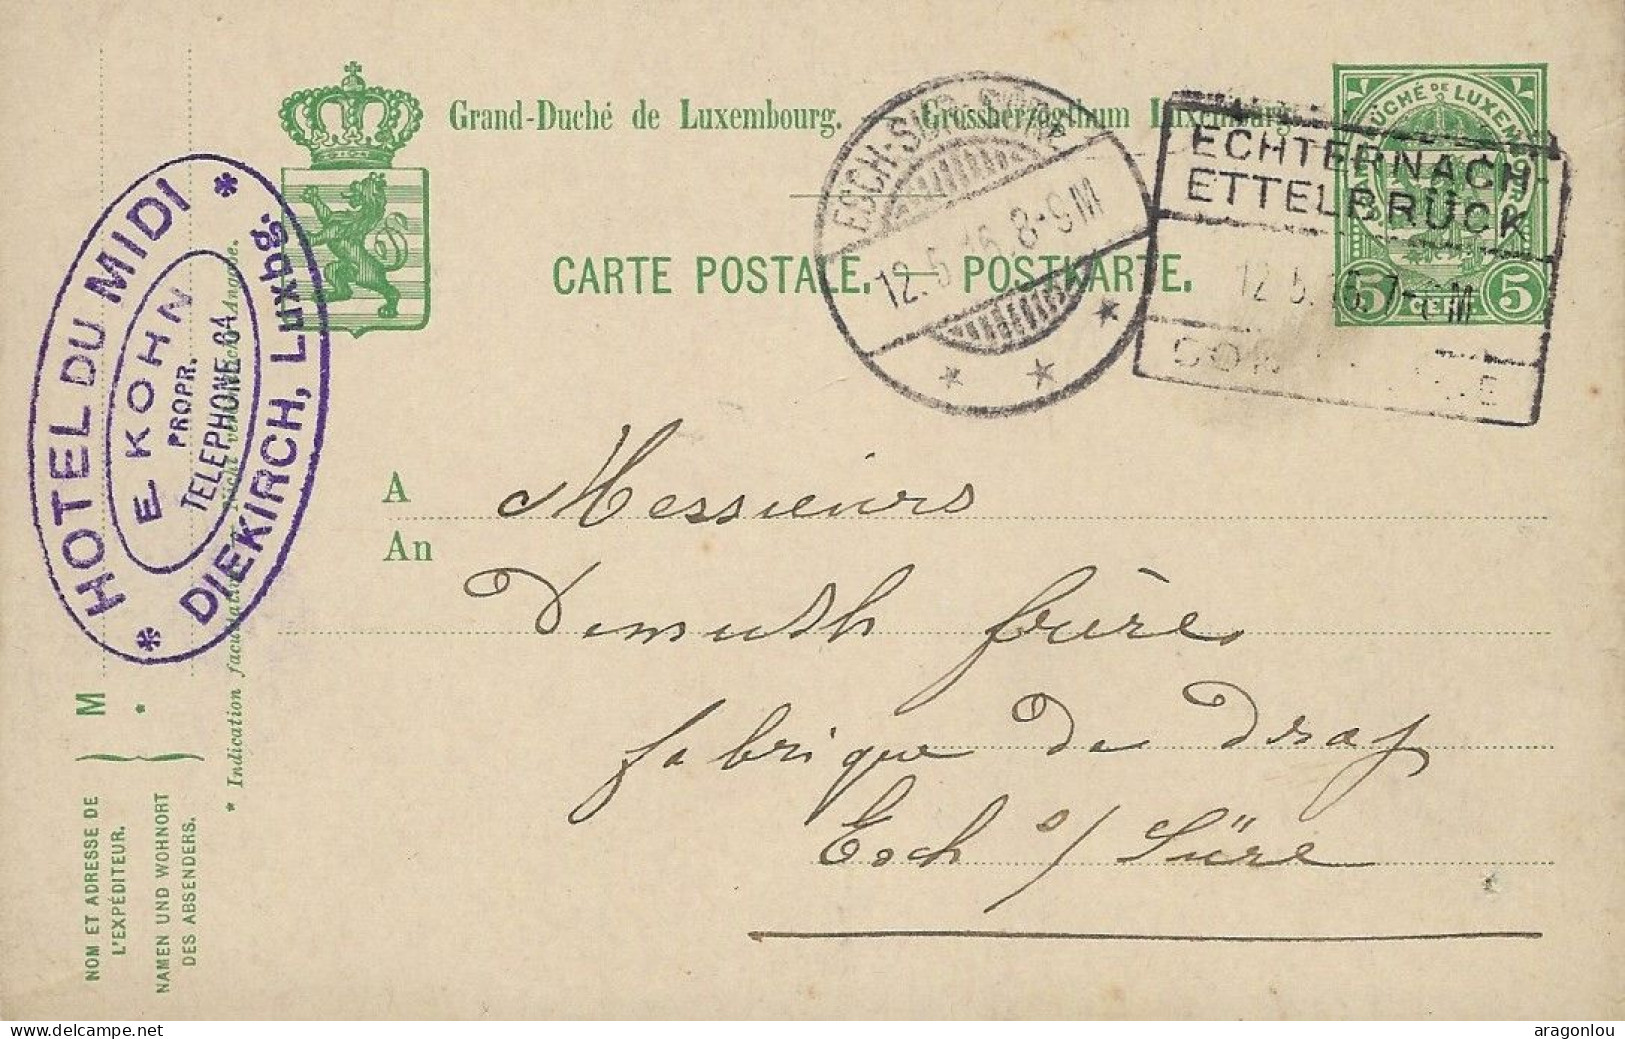 Grand-Duché de Luxembourg. Grossherzogthum Luxemburg
CARTE POSTALE. — POSTKARTE.
ESCH-SUR-SÛRE
12.5.16 8-9M
ECHTERNACH-
ETTELBRÜCK
12.5. 7- M
DUCHÉ DE LUXEMBOURG
5 CENT. 5
HOTEL DU MIDI
E KOHN
PROPR.
TELEPHONE 64
DIEKIRCH, Luxbg.
A
An
Messieurs
Demuth frères
fabrique de drap
Esch s/ Sûre
M
*
NOM ET ADRESSE DE
L'EXPÉDITEUR.
NAMEN UND WOHNORT
DES ABSENDERS.
* Indication facultative. Nicht Angabe.
www.delcampe.net
aragonlou